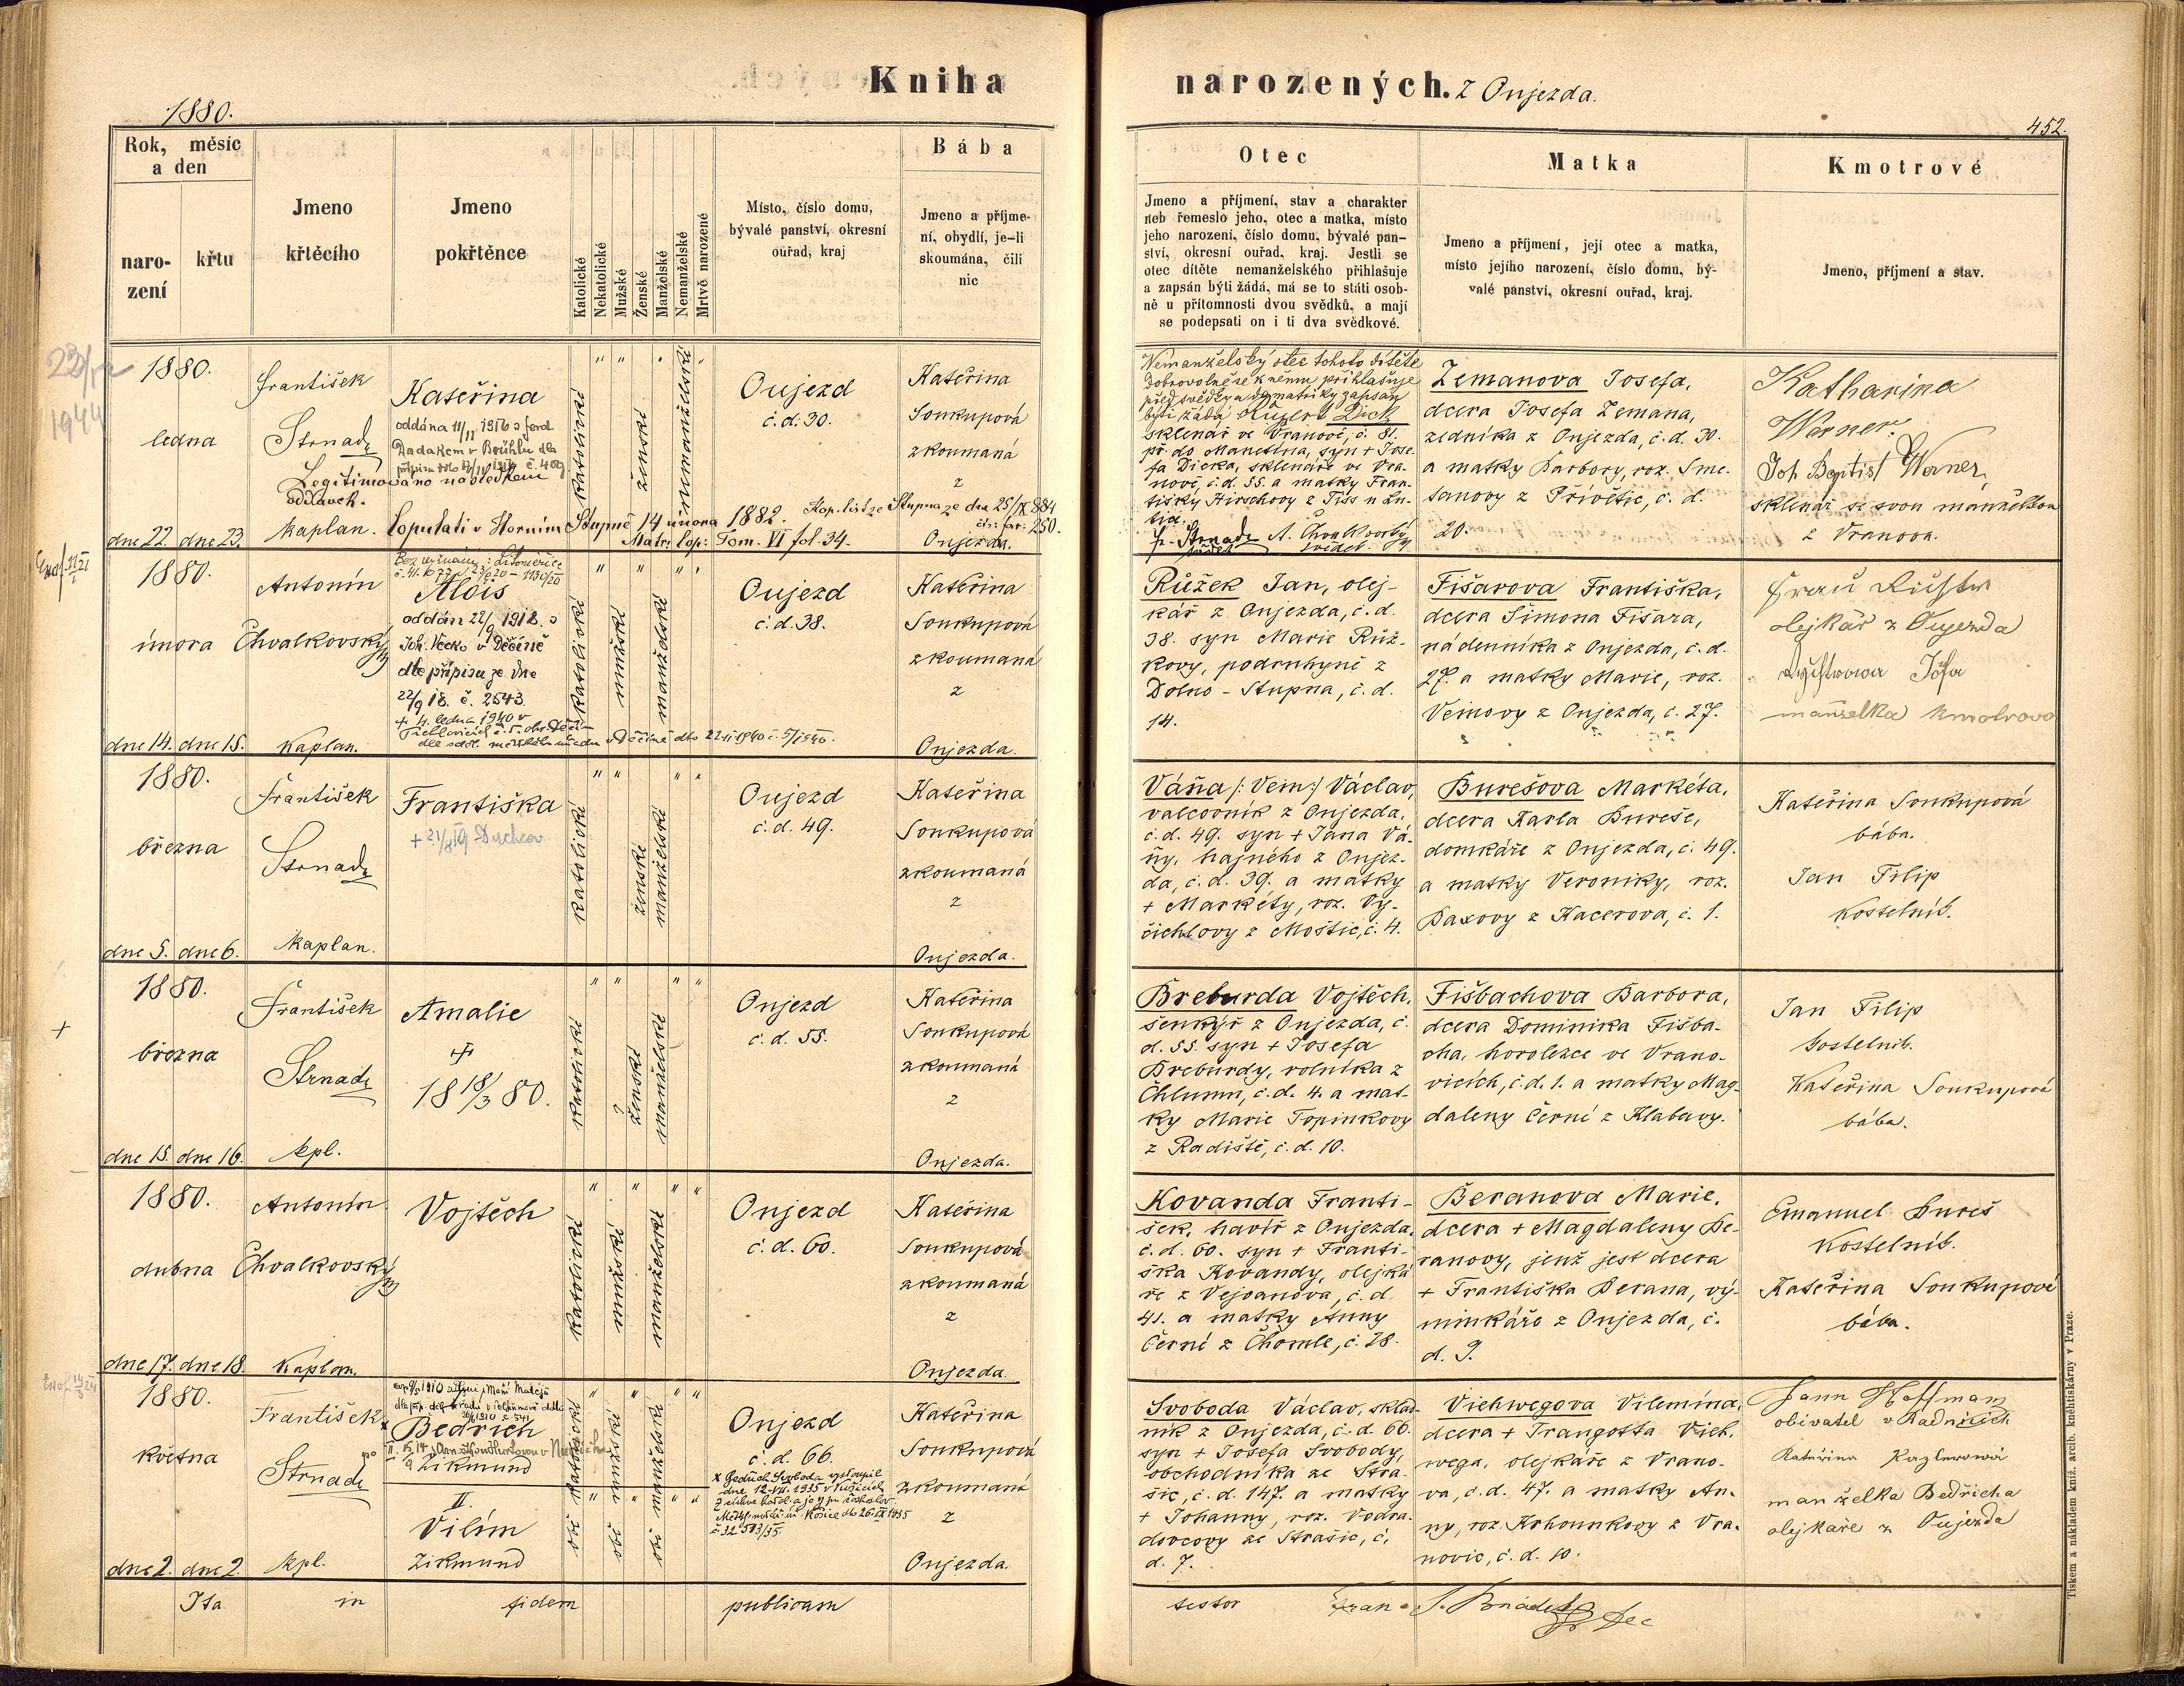 Kniha narozených. z Onjezda.
1880.
452.
Rok, měsíc
a den
naro-
zení
křtu
Jmeno
křtěcího
Jmeno
pokřtěnce
Katolické
Nekatolické
Mužské
Ženské
Manželské
Nemanželské
Mrtvě narozené
Místo, číslo domu,
bývalé panství, okresní
ouřad, kraj
Bába
Jmeno a příjme-
ní, obydlí, je-li
skoumána, čili
nic
Otec
Jmeno a příjmení, stav a charakter
neb řemeslo jeho, otec a matka, místo
jeho narození, číslo domu, bývalé pan-
ství, okresní ouřad, kraj. Jestli se
otec dítěte nemanželského přihlašuje
a zapsán býti žádá, má se to státi osob-
ně u přítomnosti dvou svědků, a mají
se podepsati on i ti dva svědkové.
Matka
Jmeno a příjmení, její otec a matka,
místo jejího narození, číslo domu, bý-
valé panství, okresní ouřad, kraj.
Kmotrové
Jmeno, příjmení a stav.
1944
1880.
ledna
dne 22. dne 23.
František
Strnad
Kaplan.
Kateřina
oddána
Legitimováno následkem
oddavek.
Copulati v Horním Stupně 14 února 1882.
Matr: Cop: Tom. VI fol. 34.
250.
katolické
ženské
nemanželské
Oujezd
č. d. 30.
Kateřina
Soukupová
zkoumaná
z
Onjezda.
Nemanželský otec tohoto dítěte
Dobrovolně se k němu přihlašuje
býti žádá Dick
sklenář ve Vranově, č. 81.
fa Dicka, sklenáře ve Vra-
nově, č. d. 55. a matky Fran-
tišky Hirschovy
Strnad A. Chvalkovský
Zemanova Josefa,
dcera Josefa Zemana,
zedníka z Onjezda, č. d. 30.
a matky Barbory, roz. Sme-
tanovy z Přívětic, č. d.
20.
Katharina
Werner.
Joh Baptist Werner,
sklenář se svou manželkou
z Vranova.
1880.
února
dne 14. dne 15.
Antonín
Chvalkovský
Kaplan.
Alois
oddán 22/9 1918. s
v Děčíně
dle přípisu ze dne
22/9 18. č. 2543.
+ 4. ledna 1940 v
katolické
mužské
manželské
Oujezd
č. d. 38.
Kateřina
Soukupová
zkoumaná
z
Onjezda.
Růžek Jan, olej-
kář z Onjezda, č. d.
38. syn Marie Růž-
kovy, podruhyně z
Dolno-Stupna, č. d.
14.
Fišarova Františka,
dcera Šimona Fišara,
nádenníka z Onjezda, č. d.
27. a matky Marie, roz.
Veinovy z Onjezda, č. 27.
olejkář z Oujezda
manželka kmotrova
1880.
března
dne 5. dne 6.
František
Strnad
Kaplan.
Františka
Duchcov
katolické
ženské
manželské
Oujezd
č. d. 49.
Kateřina
Soukupová
zkoumaná
z
Onjezda.
Váňa /: Vein :/ Václav,
valcovník z Onjezda,
č. d. 49. syn + Jana Vá-
ňy, hajného z Onjez-
da, č. d. 39. a matky
+ Markéty, roz. Vy-
čichlovy z Moštic, č. 4.
Burešova Markéta,
dcera Karla Bureše,
domkáře z Onjezda, č. 49.
a matky Veroniky, roz.
Baxovy z Kacerova, č. 1.
Kateřina Soukupová
bába.
Jan Filip
Kostelník.
1880.
března
dne 15. dne 16.
František
Strnad
kpl.
Amalie
+
18 18/3 80.
katolické
ženské
manželské
Onjezd
č. d. 55.
Kateřina
Soukupová
zkoumaná
z
Onjezda.
Breburda Vojtěch,
šenkýř z Onjezda, č.
d. 55. syn + Josefa
Breburdy, rolníka z
Chlumu, č. d. 4. a mat-
ky Marie Topinkovy
z Radiště, č. d. 10.
Fišbachova Barbora,
dcera Dominika Fišba-
cha, horolezce ve Vrano-
vicích, č. d. 1. a matky Mag-
daleny Černé z Klabavy.
Jan Filip
kostelník.
Kateřina Soukupová
bába.
1880.
dubna
dne 17. dne 18.
Antonín
Chvalkovský
Kaplan.
Vojtěch
katolické
mužské
manželské
Onjezd
č. d. 60.
Kateřina
Soukupová
zkoumaná
z
Onjezda.
Kovanda Franti-
šek, havíř z Onjezda,
č. d. 60. syn + Franti-
ška Kovandy, olejká
ře z Vejvanova, č. d.
41. a matky Anny
Černé z Chomle, č. 28.
Beranova Marie,
dcera + Magdaleny Be-
ranovy, jenž jest dcera
+ Františka Berana, vý-
minkáře z Onjezda, č.
d. 9.
Emanuel Bureš
Kostelník.
Kateřina Soukupová
bába.
1880.
května
dne 2. dne 2.
František
Strnad
kpl.
Bedřich
a Zikmund
II.
Vilím
Zikmund
obě katolické
obě mužské
obě manželské
Onjezd
č. d. 66.
x Bedřich Svoboda vystoupil
dne 12.VII. 1935 v Košicích
z církve
Kateřina
Soukupová
zkoumaná
z
Onjezda.
Svoboda Václav, sklad-
ník z Onjezda, č. d. 66.
syn + Josefa Svobody,
obchodníka ze Stra-
šic, č. d. 147. a matky
+ Johanny, roz. Vodra-
dovcovy ze Strašic, č.
d. 7.
Viehwegova Vilemína,
dcera + Trangotta Vieh-
wega, olejkáře z Vrano-
va, č. d. 47. a matky An-
ny, roz. Krhounkovy z Vra-
novic, č. d. 10.
Hoffmann
obivatel v Radnicích
Kateřina
manželka Bedřicha
olejkaře z Oujezda
Ita in fidem publicam testor
Tiskem a nákladem kníž. arcib. knihtiskárny v Praze.